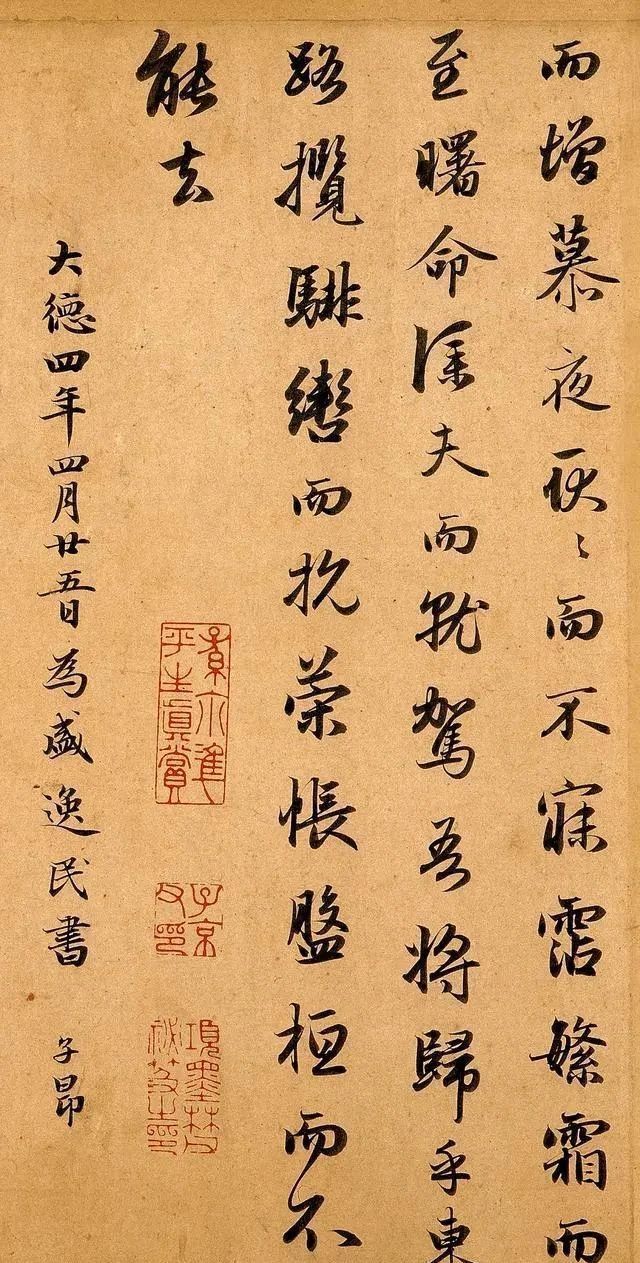 而增慕夜耿〻而不寐霑繁霜而
至曙命僕夫而就駕吾將歸乎東
路攬騑轡而抗策悵盤桓而不
能去
平生真賞
子京
父印
項墨林
秘笈之印
大德四年四月廿五日為盛逸民書 子昂